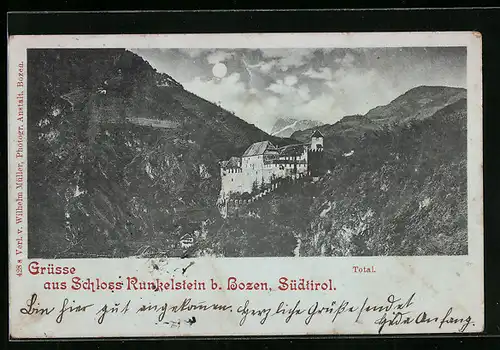 428 s Verl. v. Wilhelm Müller, Photogr. Anstalt, Bozen.
Grüsse
aus Schloss Runkelstein b. Bozen, Südtirol.
Total.
Bin hier gut angekommen. Herzliche Grüße sendet
Anfang.